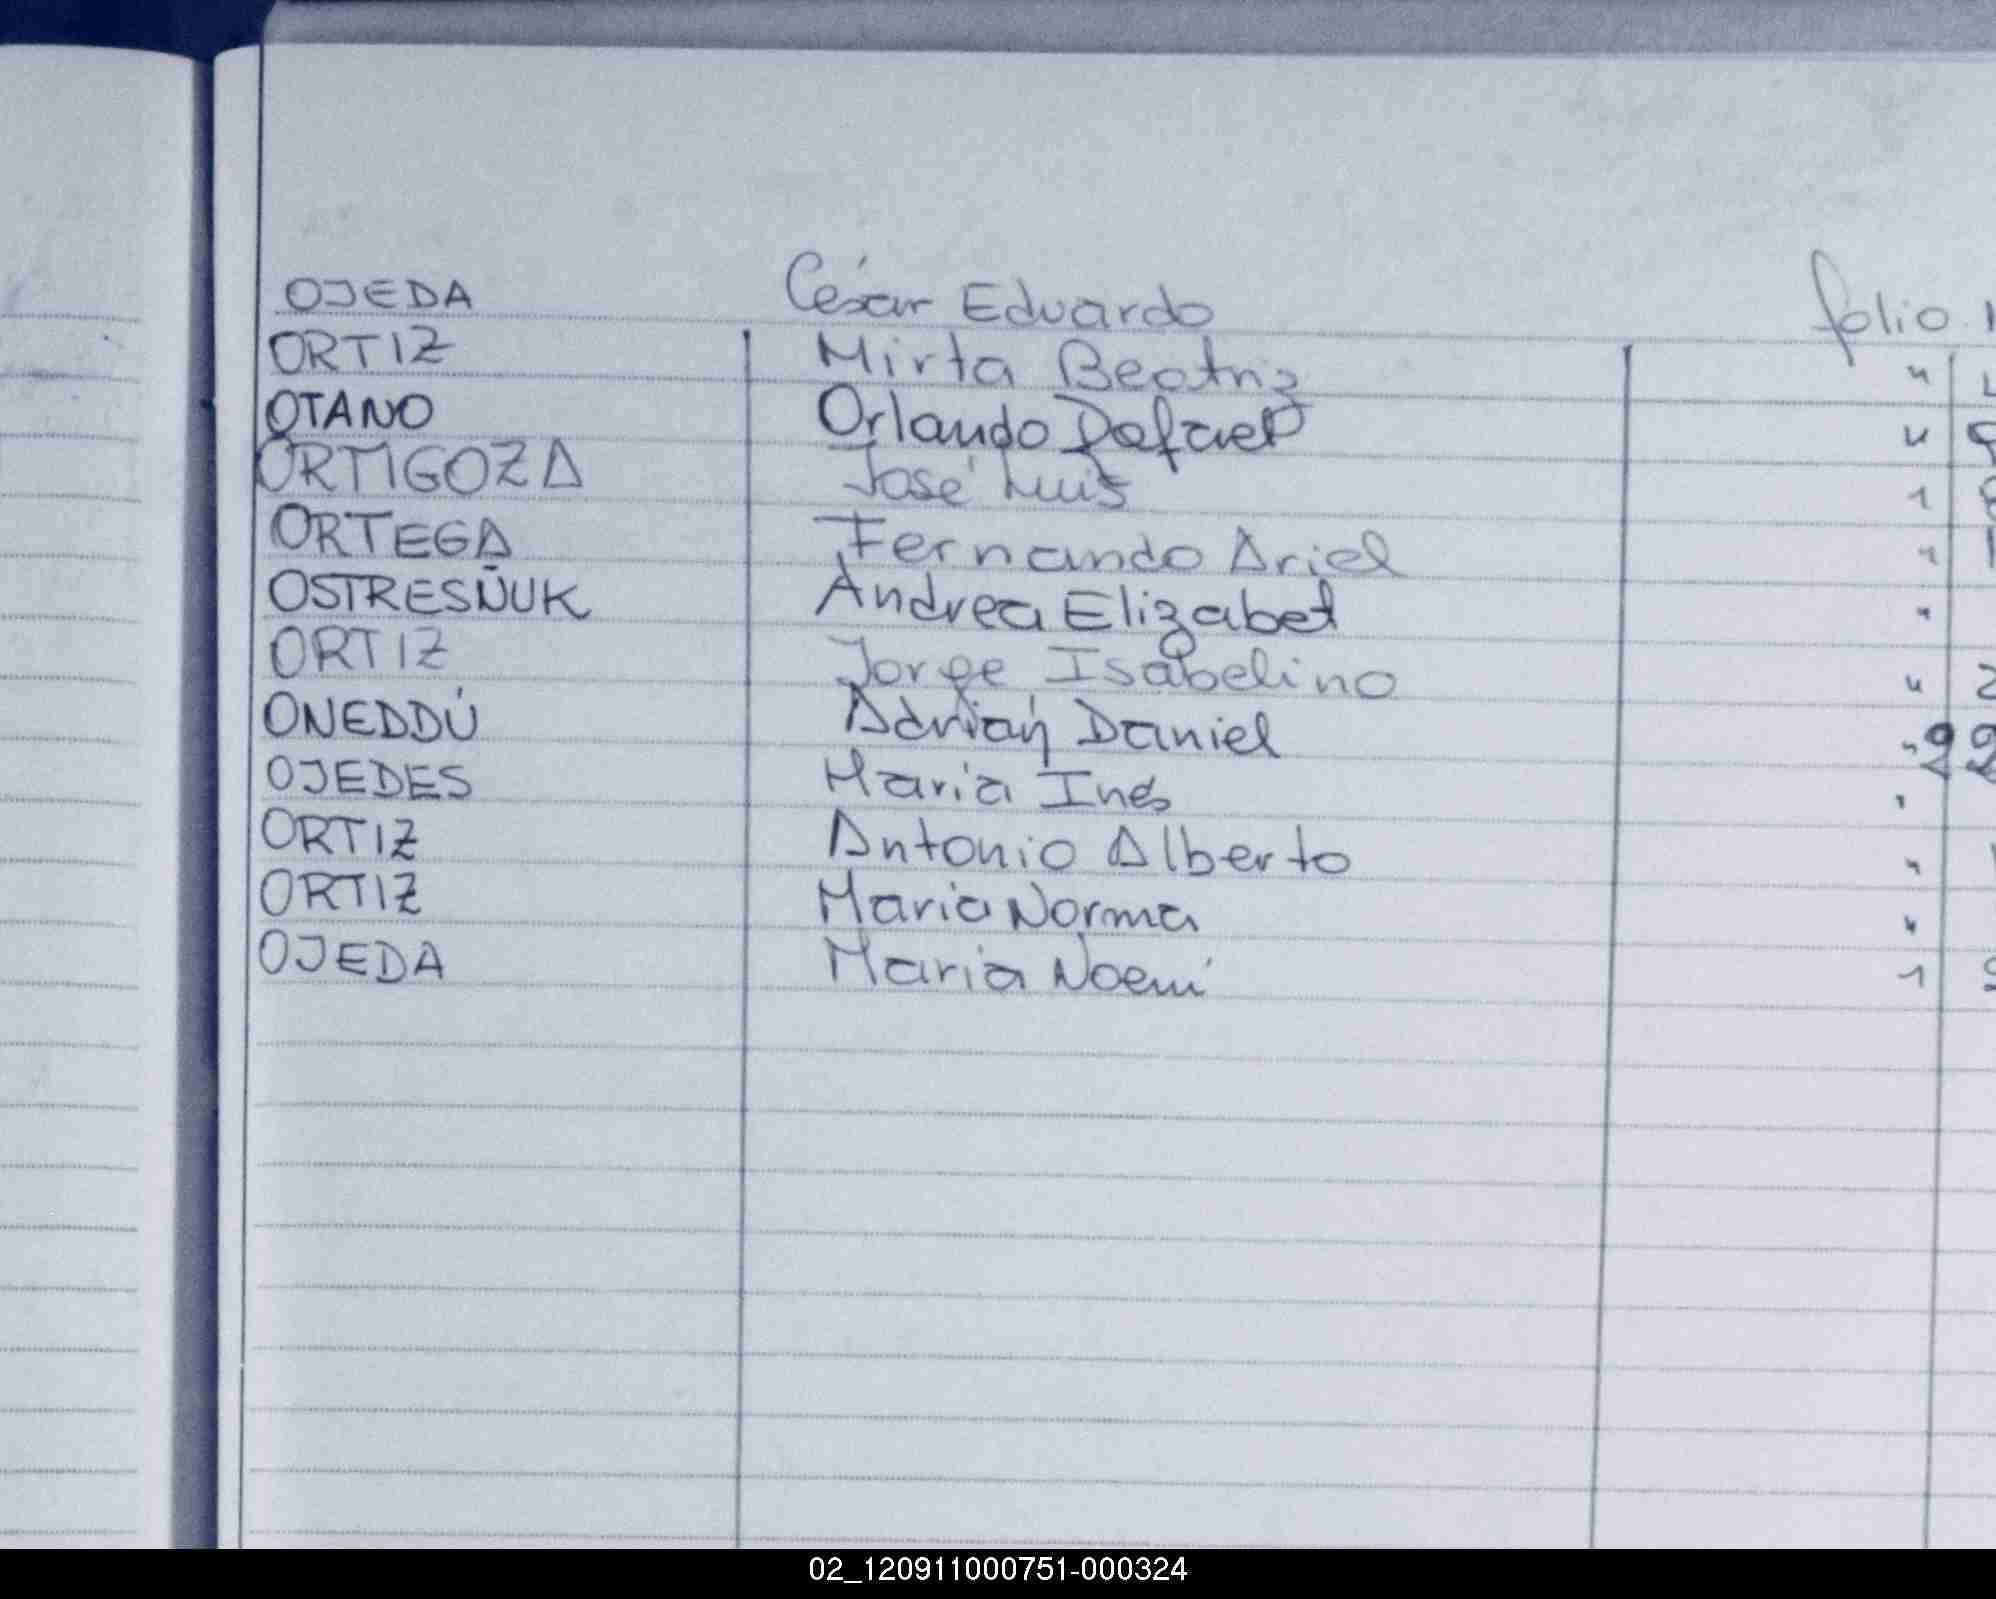 OJEDA César Eduardo folio
ORTIZ Mirta Beatriz "
OTANO Orlando Rafael "
ORTIGOZA José Luis "
ORTEGA Fernando Ariel "
OSTRESÑUK Andrea Elizabet "
ORTIZ Jorge Isabelino " 2
ONEDDÚ Adrián Daniel " 22
OJEDES María Inés "
ORTIZ Antonio Alberto "
ORTIZ María Norma "
OJEDA María Noemí "
02_120911000751-000324